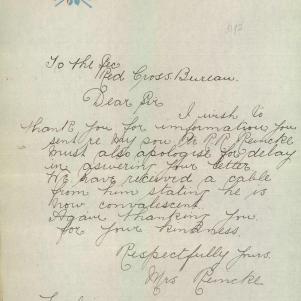 To the Sec
Red Cross Bureau.
Dear Sir
I wish to
thank you for imformation you
sent re my son Pte P.R. Reincke
must also apologise for delay
in aswering your letter
We have received a cable
from him stating he is
now convalescent.
Again thanking you
for your kindness.
Respectfully yours.
Mrs Reincke